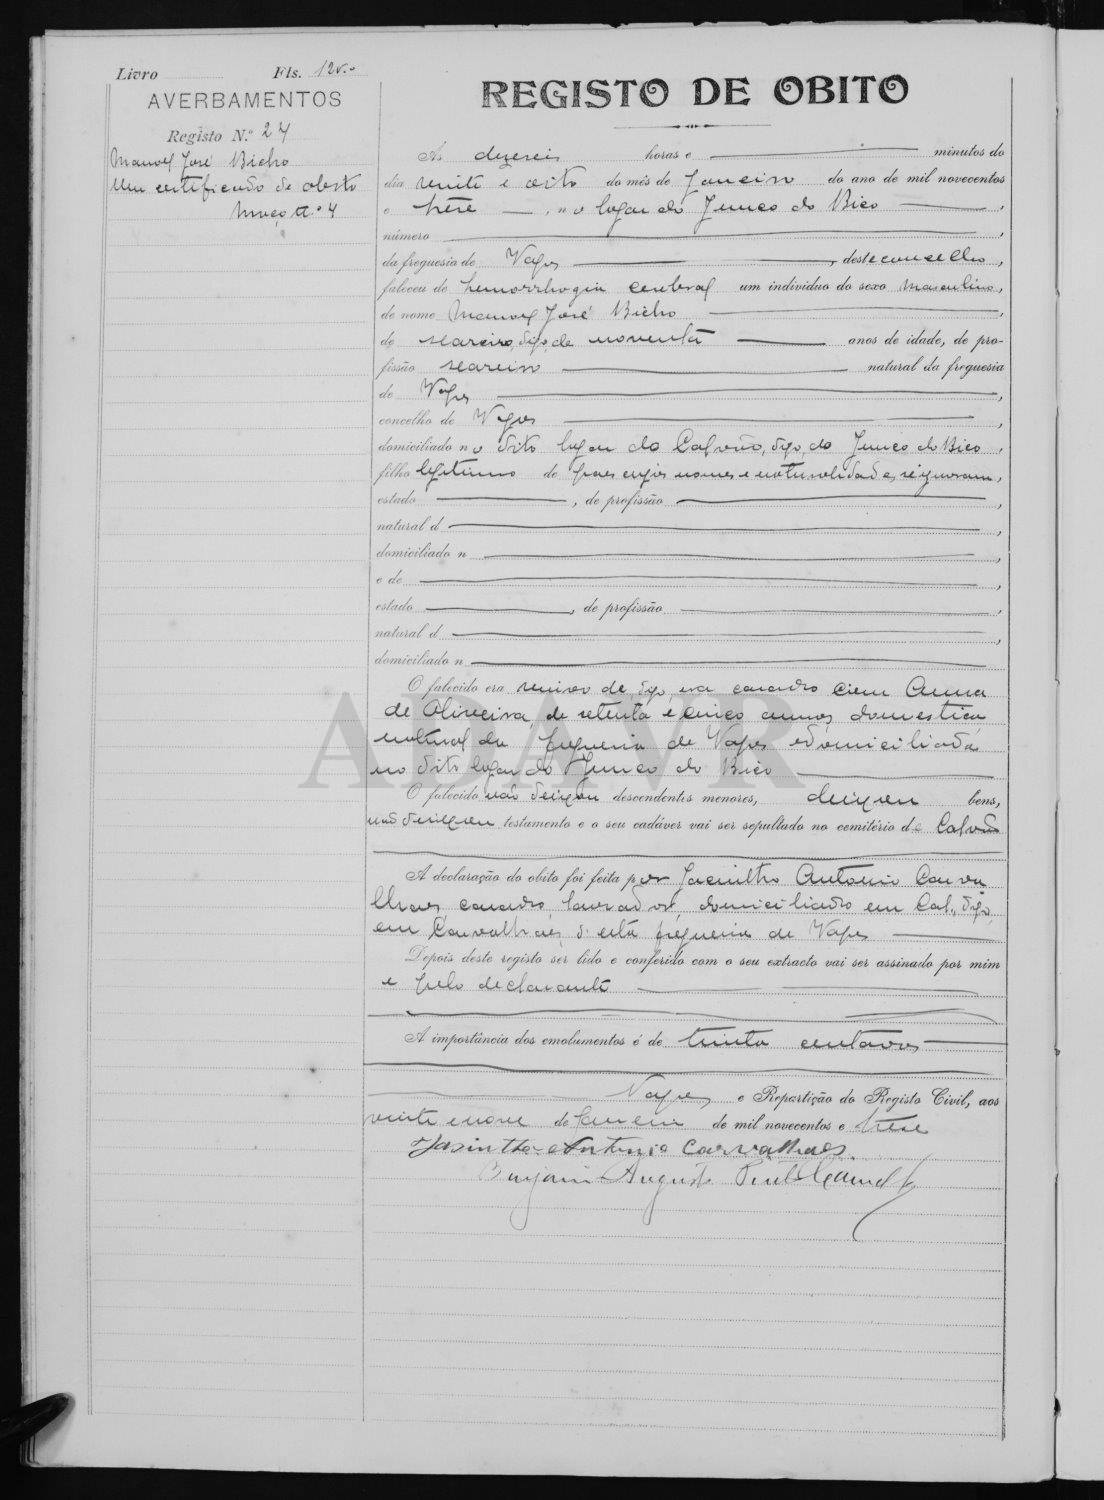 Livro Fls. 12v.º
AVERBAMENTOS
Registo N.º 24
Manoel José Bicho
Um certificado de obito
Maço n.º 4
REGISTO DE OBITO
As dezeseis horas e minutos do
dia vinte e oito do mês de Janeiro do ano de mil novecentos
e treze, no logar do Junco do Bico,
número,
da freguesia de Vagos, deste concelho,
faleceu de hemorrhagia cerebral um individuo do sexo masculino,
de nome Manoel José Bicho,
de seareiro, digo, de noventa anos de idade, de pro-
fissão seareiro natural da freguesia
de Vagos,
concelho de Vagos,
domiciliado no dito logar do Calvão, digo, do Junco do Bico,
filho legitimo de paes cujos nomes e naturalidades se ignoram,
estado, de profissão,
natural d,
domiciliado n,
e de,
estado, de profissão,
natural d,
domiciliado n
O falecido era viuvo de digo era casado com Anna
de Oliveira, de setenta e cinco annos, domestica
natural da freguesia de Vagos e domiciliada
no dito logar do Junco do Bico
O falecido não deixou descendentes menores, deixou bens,
não deixou testamento e o seu cadáver vai ser sepultado no cemitério de Calvão
A declaração do obito foi feita por Jacintho Antonio Carva
lhaes, casado, lavrador, domiciliado em Cal, digo,
em Carvalhaes, d'esta freguesia de Vagos
Depois deste registo ser lido e conferido com o seu extracto vai ser assinado por mim
e pelo declarante
A importância dos emolumentos é de trinta centavos
Vagos e Repartição do Registo Civil, aos
vinte e nove de Janeiro de mil novecentos e treze
Jasintho Antonio Carvalhaes.
Benjamin Augusto
ADAVR